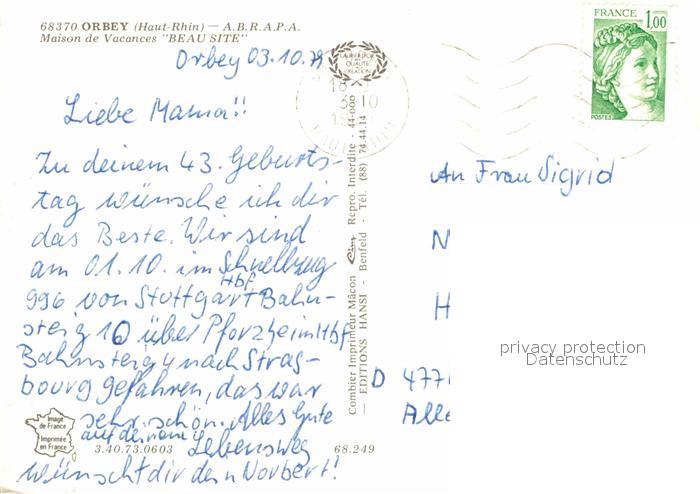 68370 ORBEY (Haut-Rhin) — A.B.R.A.P.A.
Maison de Vacances "BEAU SITE"
Orbey 03.10.79
Liebe Mama!!
Zu deinem 43. Geburts-
tag wünsche ich dir
das Beste. Wir sind
am 01.10. im Schnellzug
996 von Stuttgart Hbf Bahn-
steig 10 über Pforzheim Hbf
Bahnsteig 4 nach Stras-
bourg gefahren, das war
sehr schön. Alles Gute
auf deinem
Lebensweg
wünscht dir dein Norbert!
Image
de France
Imprimée
en France
3.40.73.0603
68.249
Combier Imprimeur Mâcon Cim Repro. Interdite - 44-000
— EDITIONS HANSI - Benfeld - Tél. (88) 74.44.14
3 10
FRANCE
1,00
POSTES
An Frau Sigrid
N
H
D 477
Alle
privacy protection
Datenschutz